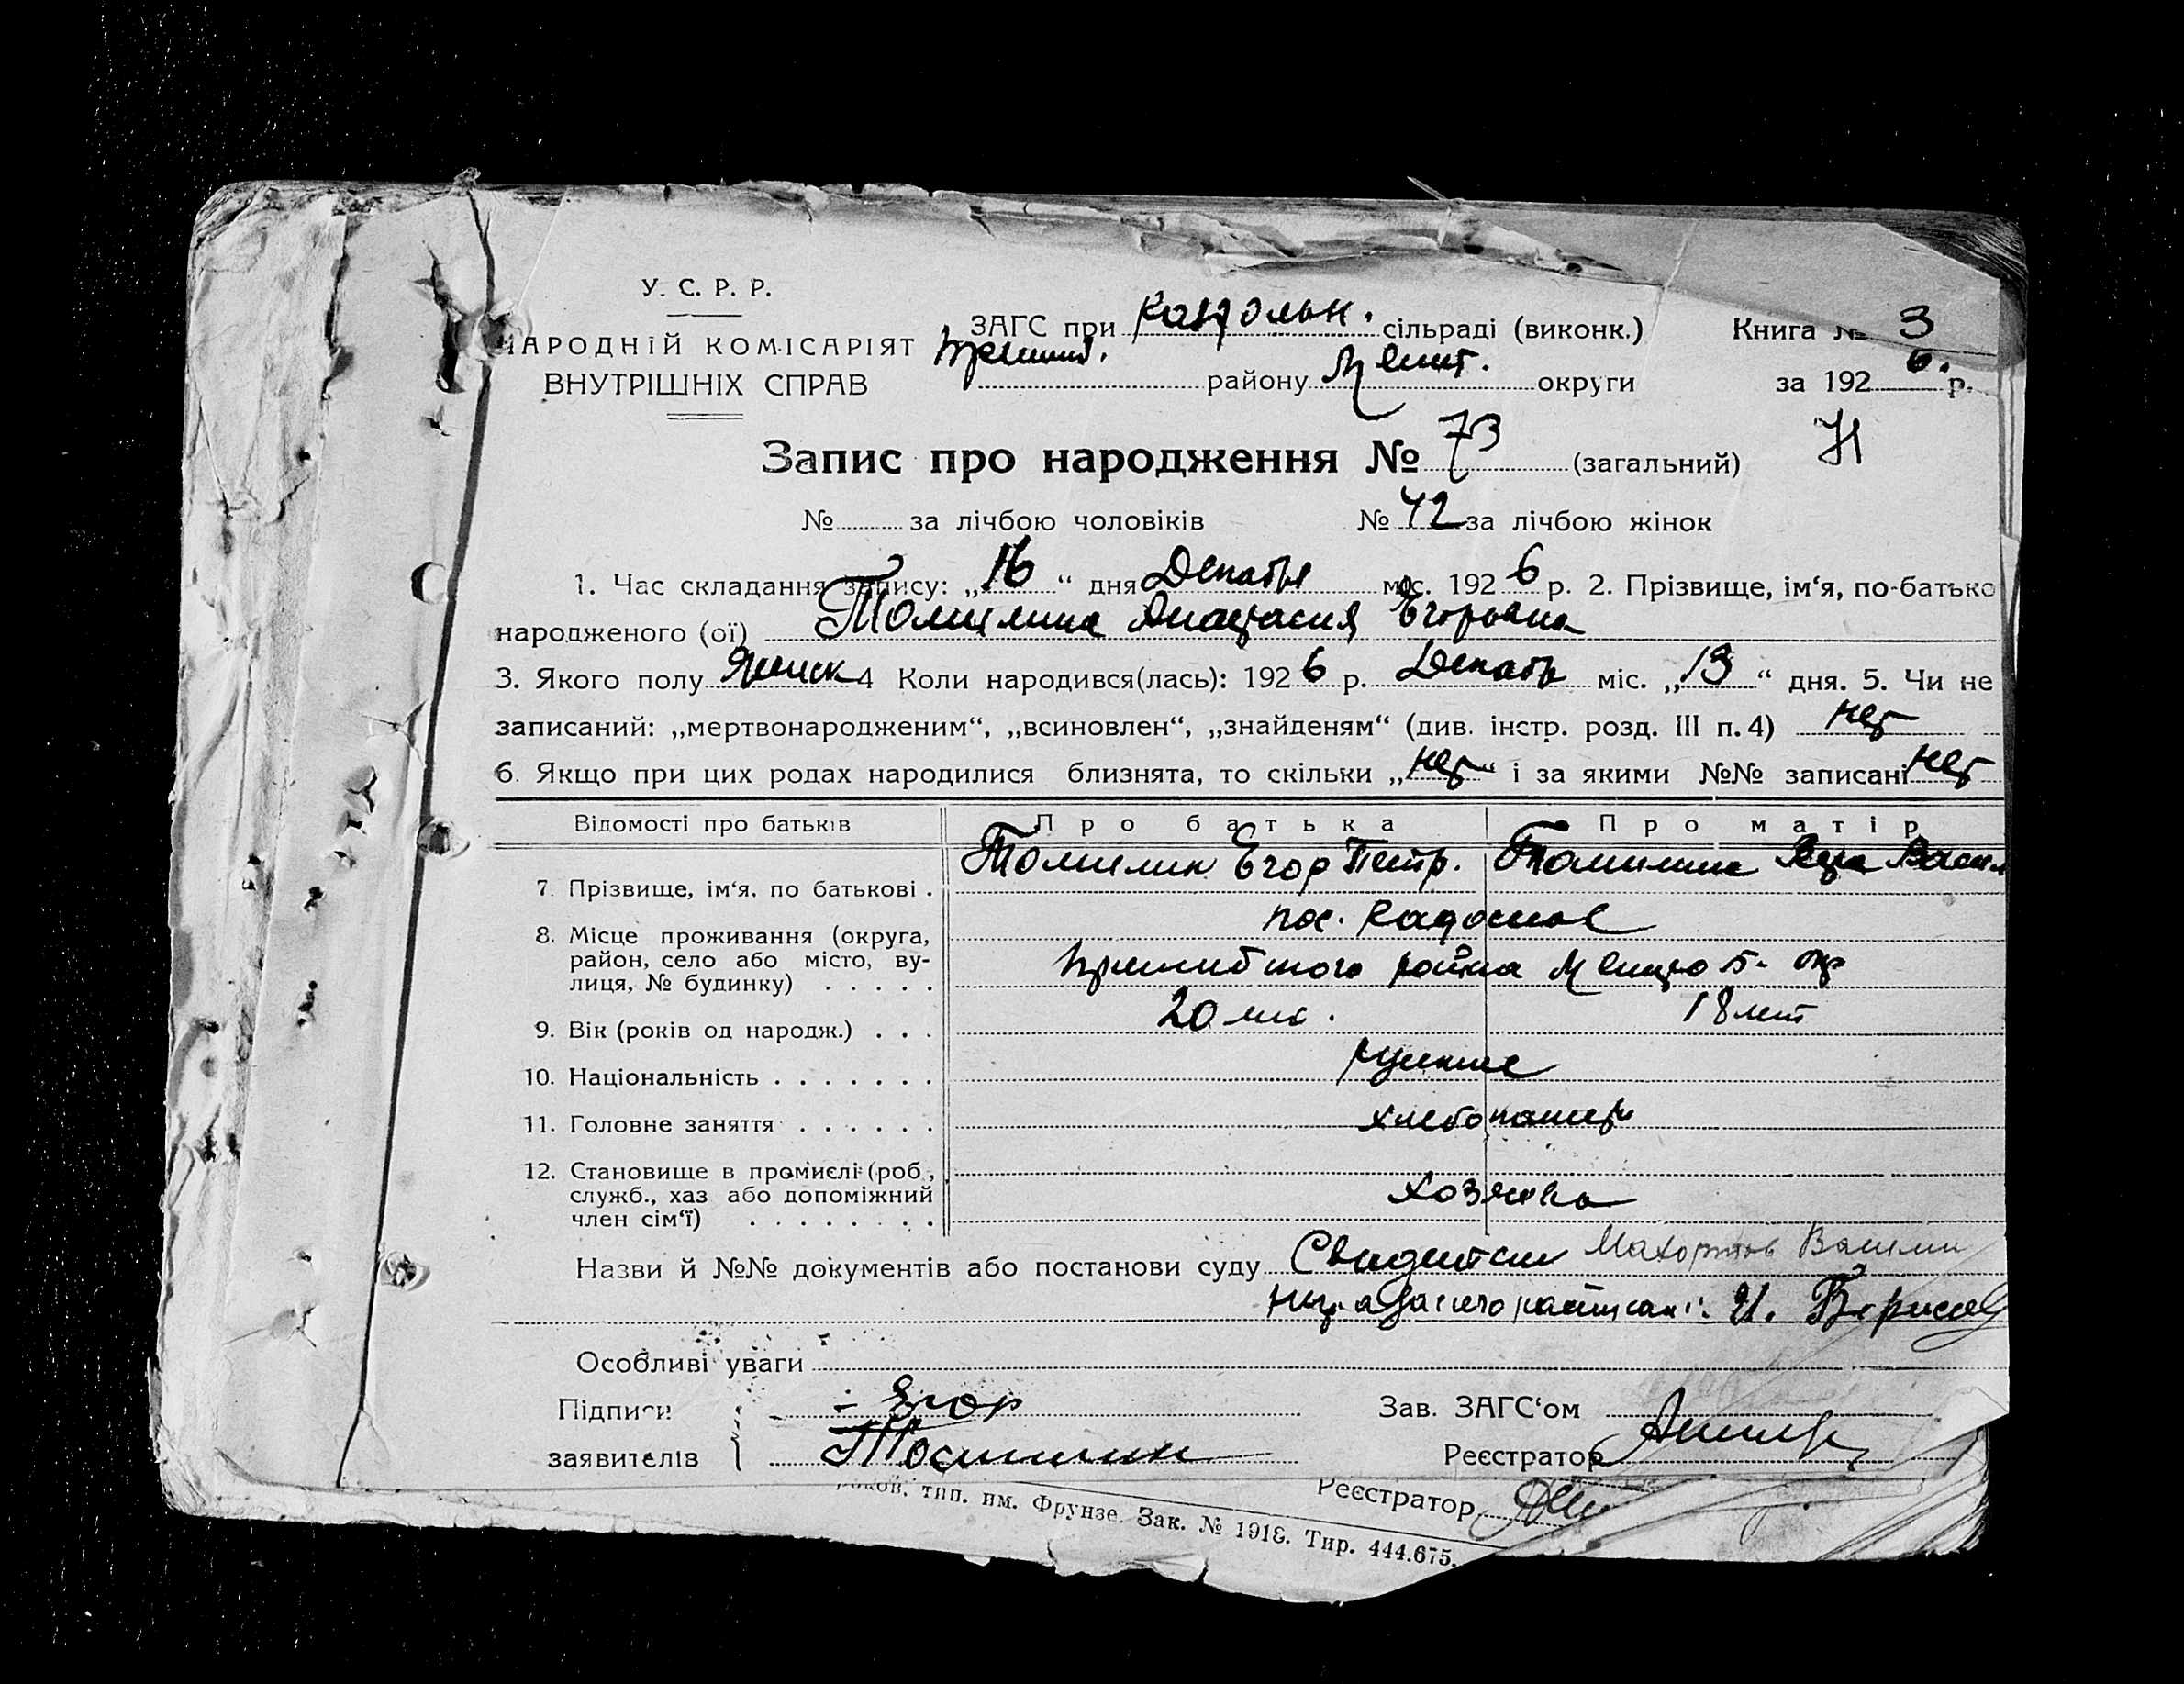 У. С. Р. Р.
НАРОДНІЙ КОМІСАРІЯТ
ВНУТРІШНІХ СПРАВ
ЗАГС при сільраді (виконк.)
району округи
Книга № 3
за 1926. р.
Запис про народження № 73 (загальний) Н
№ за лічбою чоловіків № 42 за лічбою жінок
1. Час складання запису: „16“ дня Декабря міс. 1926 р. 2. Прізвище, ім‘я, по-батько
народженого (ої) Томилина Анастасия Егоровна
3. Якого полу Женск 4 Коли народився(лась): 1926 р. Декабр міс. „13“ дня. 5. Чи не
записаний: „мертвонародженим“, „всиновлен“, „знайденям“ (див. інстр. розд. III п. 4) нет
6. Якщо при цих родах народилися близнята, то скільки „нет“ і за якими №№ записані нет
Відомості про батьків Про батька Про матір
7. Прізвище, ім‘я, по батькові . Томилин Егор Петр. Томилина Васил
8. Місце проживання (округа, пос.
район, село або місто, ву-
лиця, № будинку) . . . . . района
9. Вік (років од народж.) . . . 20 лет. 18 лет
10. Національність . . . . . . . русские
11. Головне заняття . . . . . . хлебопашцы
12. Становище в промислі (роб.,
служб., хаз або допоміжний хозяева
член сім‘ї) . . . . . . . .
Назви й №№ документів або постанови суду Свидетели Махортов Василий
И. Борисов
Особливі уваги
Підписи Егор Зав. ЗАГС‘ом
заявителів Томилин Реєстратор
Реєстратор
тип. им. Фрунзе. Зак. № 1918. Тир. 444.675.